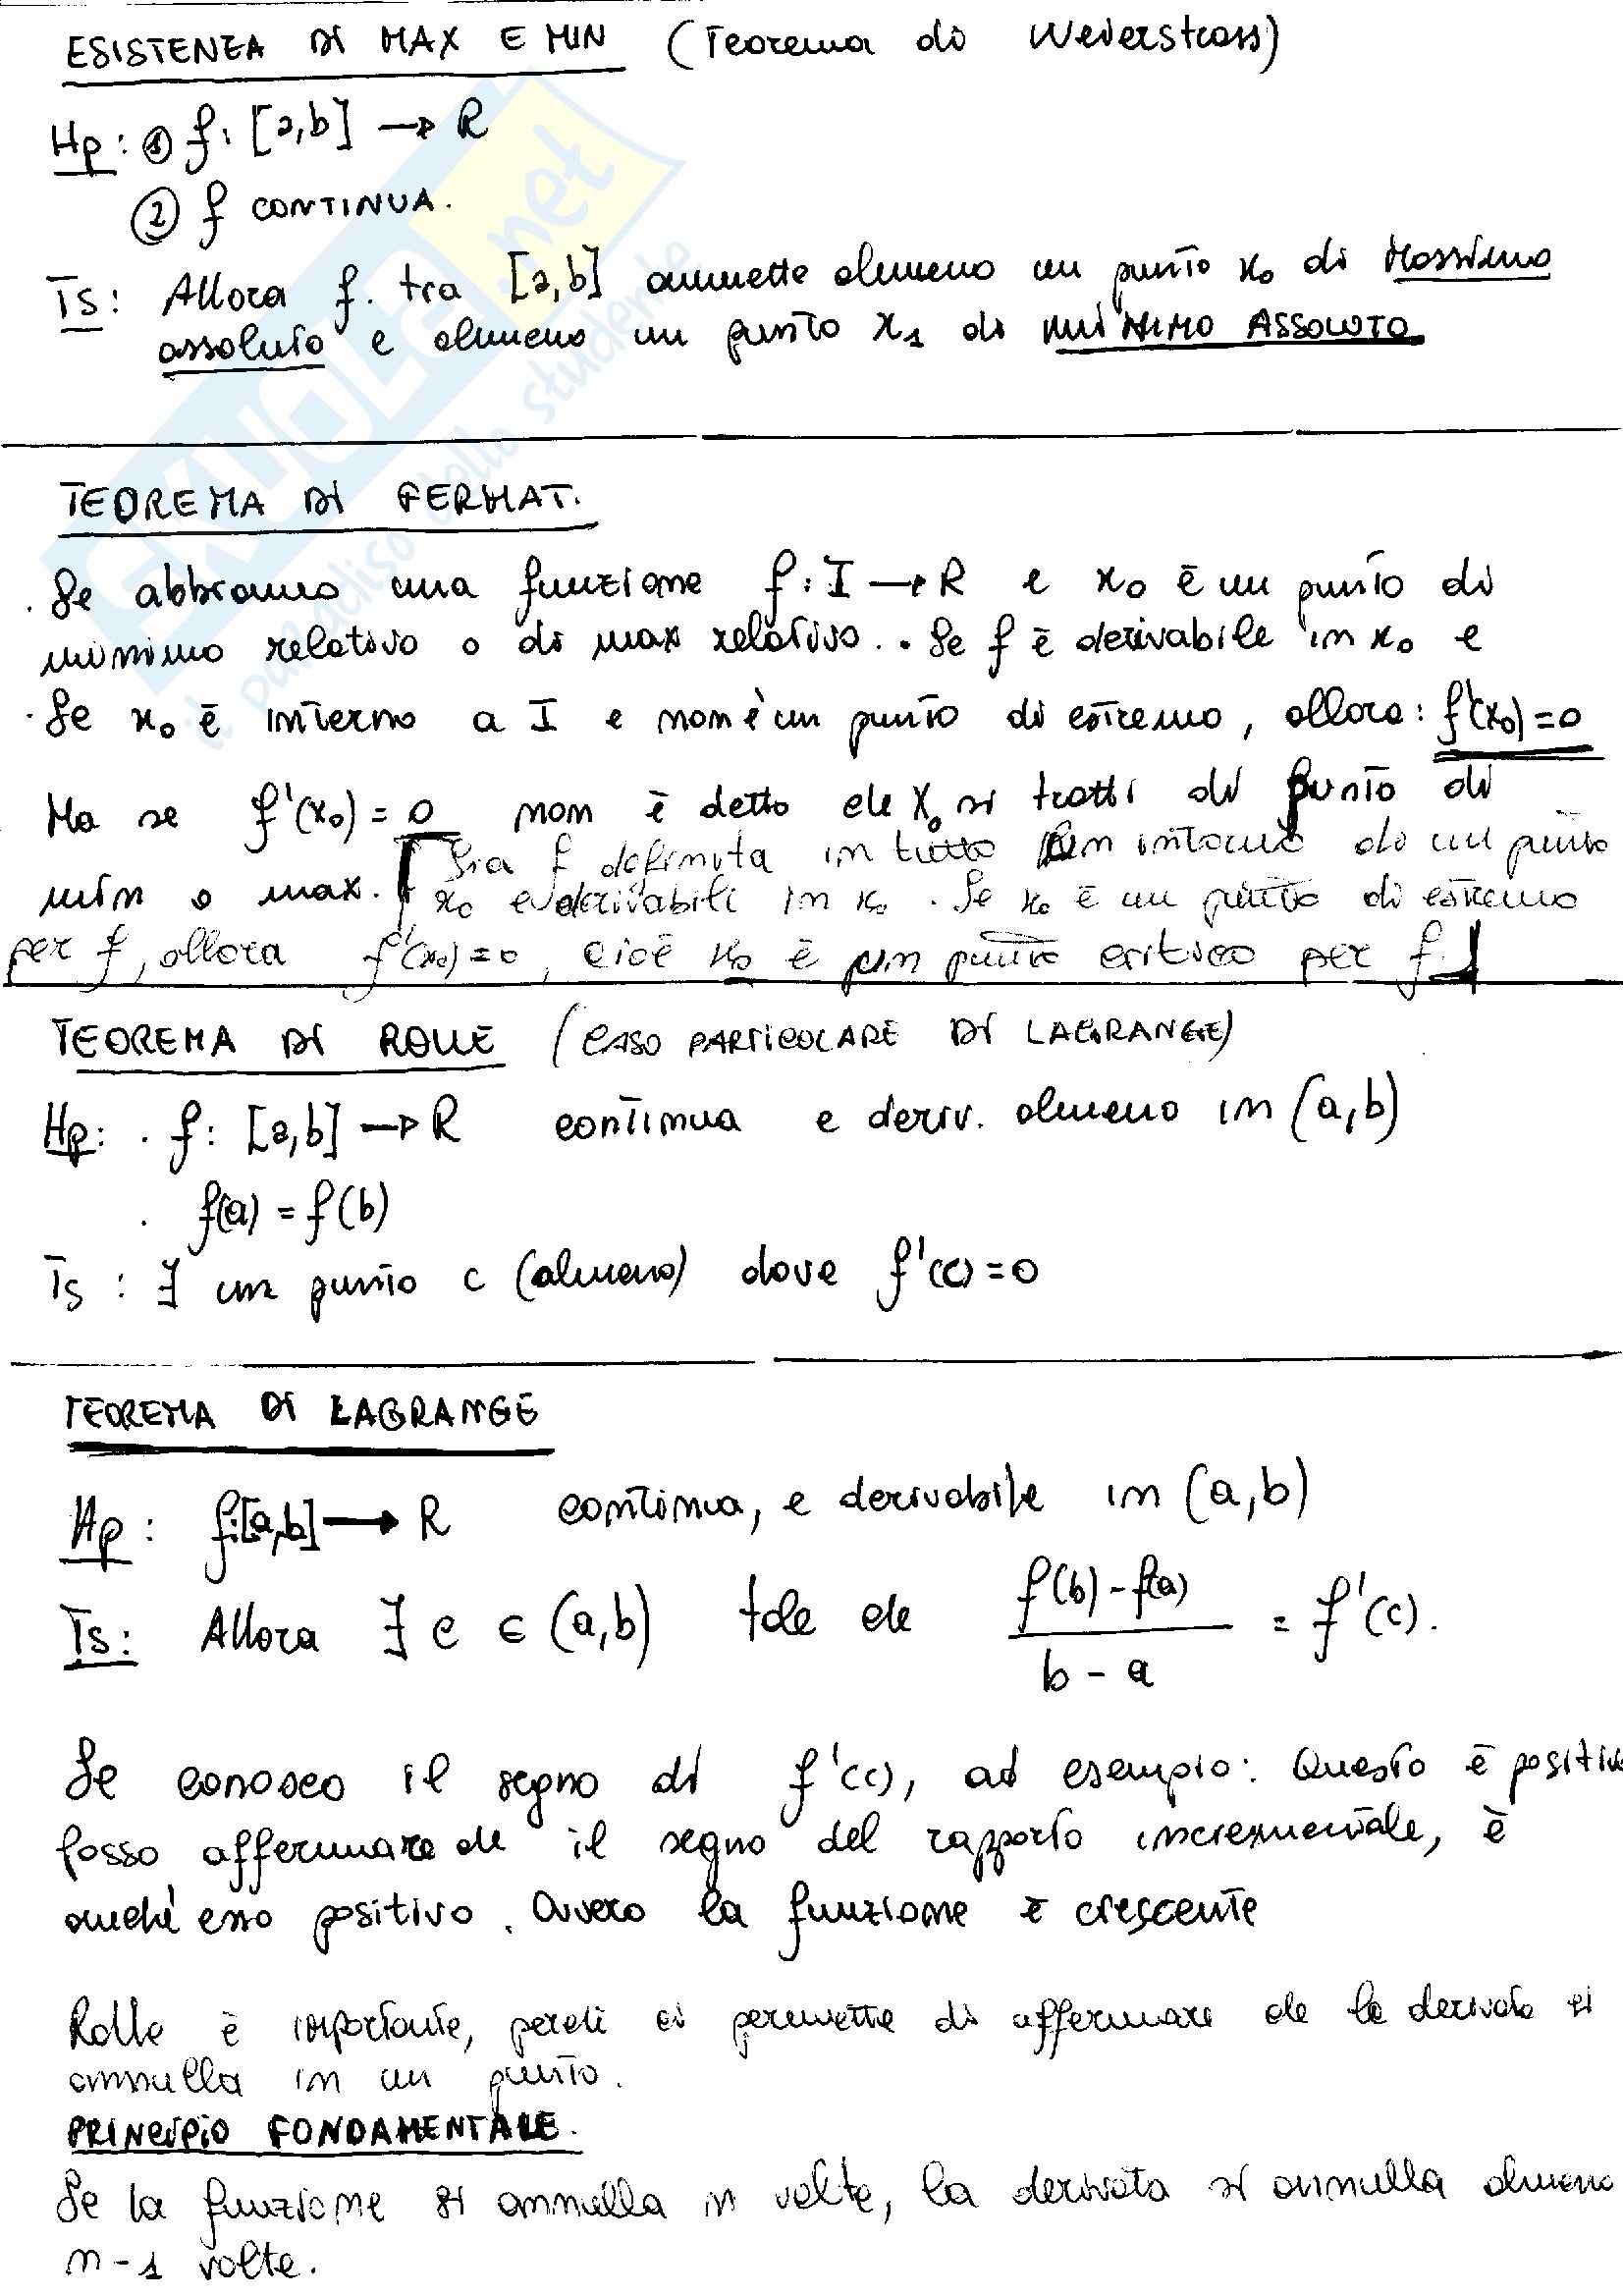 ESISTENZA DI MAX E MIN (Teorema di Weierstrass)
Hp: ① f: [a,b] → R
② f CONTINUA.
Ts: Allora f. tra [a,b] ammette almeno un punto x₀ di Massimo
assoluto e almeno un punto x₁ di MINIMO ASSOLUTO
TEOREMA DI FERMAT.
. Se abbiamo una funzione f: I → R e x₀ è un punto di
minimo relativo o di max relativo. . Se f è derivabile in x₀ e
. Se x₀ è interno a I e non è un punto di estremo, allora: f'(x₀)=0
Ma se f'(x₀)=0 non è detto che x₀ si tratti di punto di
min o max.
[ Sia f definita in tutto un intorno di un punto
x₀ e derivabili in x₀. Se x₀ è un punto di estremo
per f, allora f'(x₀)=0, cioè x₀ è un punto critico per f. ]
TEOREMA DI ROLLE (CASO PARTICOLARE DI LAGRANGE)
Hp: . f: [a,b] → R continua e deriv. almeno in (a,b)
. f(a) = f(b)
Ts: ∃ un punto c (almeno) dove f'(c)=0
TEOREMA DI LAGRANGE
Hp: f:[a,b] → R continua, e derivabile in (a,b)
Ts: Allora ∃ c ∈ (a,b) tale che f(b)-f(a) / b-a = f'(c).
Se conosco il segno di f'(c), ad esempio: Questo è positivo
posso affermare che il segno del rapporto incrementale, è
anche esso positivo. Ovvero la funzione è crescente
Rolle è importante, perché ci permette di affermare che la derivata si
annulla in un punto.
PRINCIPIO FONDAMENTALE.
Se la funzione si annulla n volte, la derivata si annulla almeno
n-1 volte.
SKUOLA.net
il paradiso dello studente